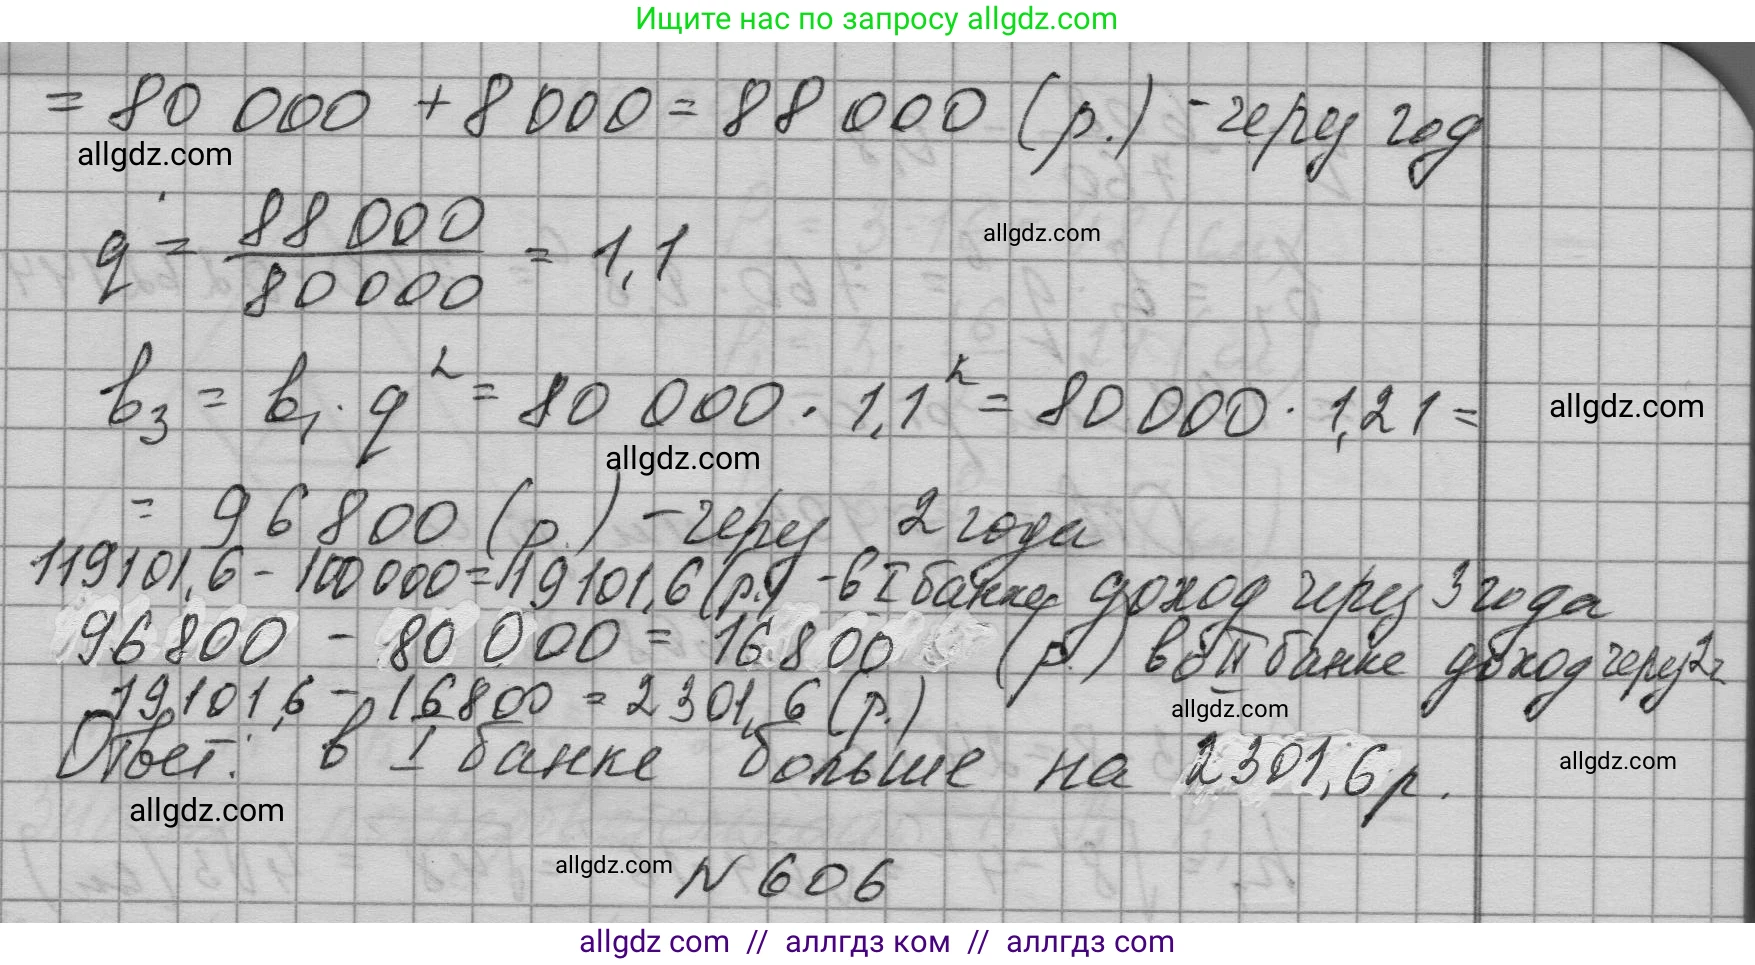 Ищите нас по запросу allgdz.com
= 80 000 + 8 000 = 88 000 (р.) - через год
allgdz.com
q = 88 000 / 80 000 = 1,1
allgdz.com
b₃ = b₁ · q² = 80 000 · 1,1² = 80 000 · 1,21 =
allgdz.com
allgdz.com
= 96 800 (р.) - через 2 года
119101,6 - 100 000 = 19101,6 (р.) - в I банке доход через 3 года
96 800 - 80 000 = 16 800 (р.) во II банке доход через 2 г
19101,6 - 16800 = 2301,6 (р.)
allgdz.com
Ответ: в I банке больше на 2301,6 р.
allgdz.com
allgdz.com
allgdz.com
N 606
allgdz com // аллгдз ком // аллгдз com